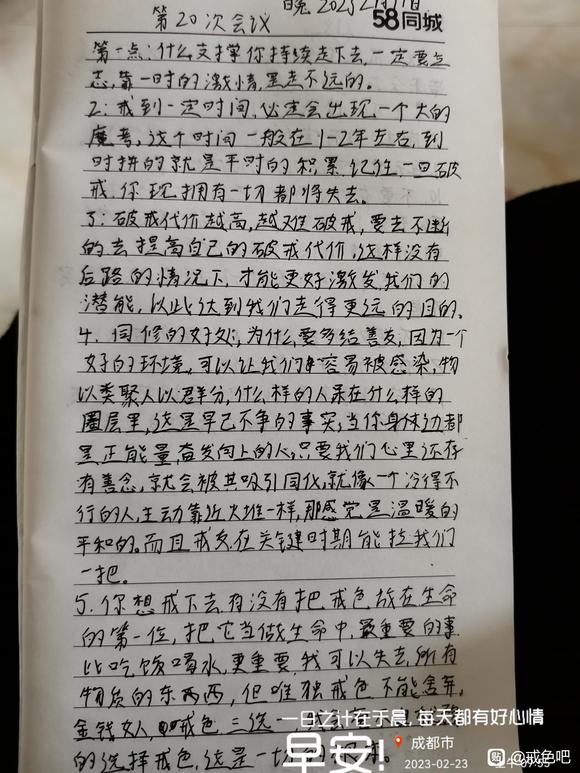 晚 2023 2月
第20次会议
58同城
第一点:什么支撑你持续走下去,一定要立
志,靠一时的激情,是走不远的。
2:戒到一定时间,必定会出现一个大的
魔考,这个时间一般在1-2年左右,到
时拼的就是平时的积累,记住,一旦破
戒,你现拥有一切都将失去。
3:破戒代价越高,越难破戒,要去不断
的去提高自己的破戒代价,这样没有
后路的情况下,才能更好激发我们的
潜能,以此达到我们走得更远的目的。
4.同修的好处,为什么要多结善友,因为一个
好的环境,可以让我们容易被感染,物
以类聚人以群分,什么样的人呆在什么样的
圈层里,这是早已不争的事实,当你身体边都
是正能量,奋发向上的人,只要我们心里还存
有善念,就会被其吸引同化,就像一个冷得不
行的人,主动靠近火堆一样,那感觉是温暖的
平和的。而且戒友在关键时期能拉我们
一把。
5.你想戒下去有没有把戒色放在生命
的第一位,把它当做生命中,最重要的事
比吃饭喝水,更重要,我可以失去,所有
物质的东西,但唯独戒色不能舍弃,
金钱女人,戒色三选一,
的选择戒色,这是一切的
一日之计在于晨,每天都有好心情
早安!
成都市
2023-02-23
贴 @戒色吧